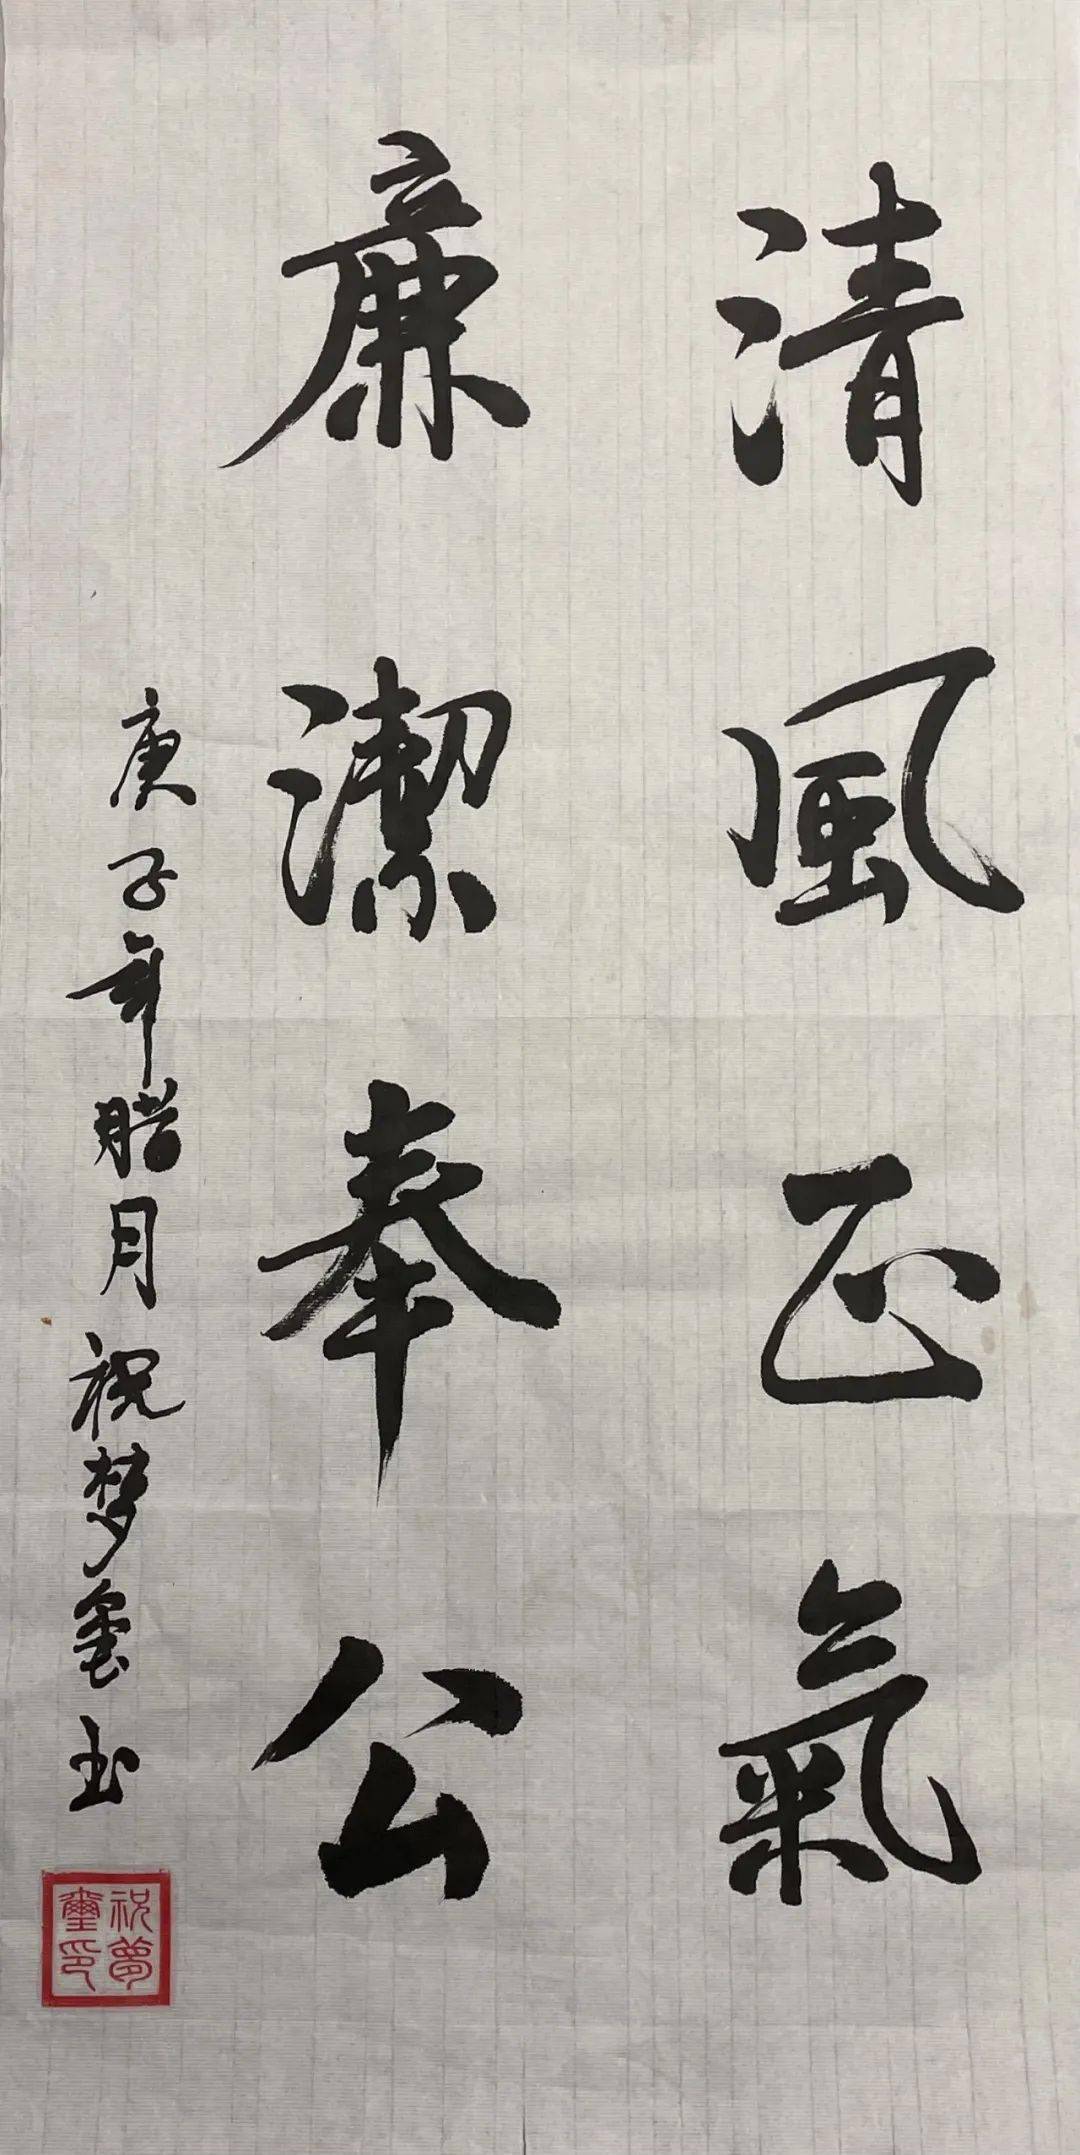 清風正氣
廉潔奉公
庚子年腊月祝梦玺书
祝夢
璽印